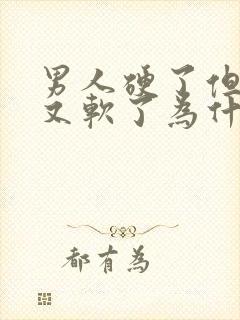 男人硬了但
又軟了為什
都有為